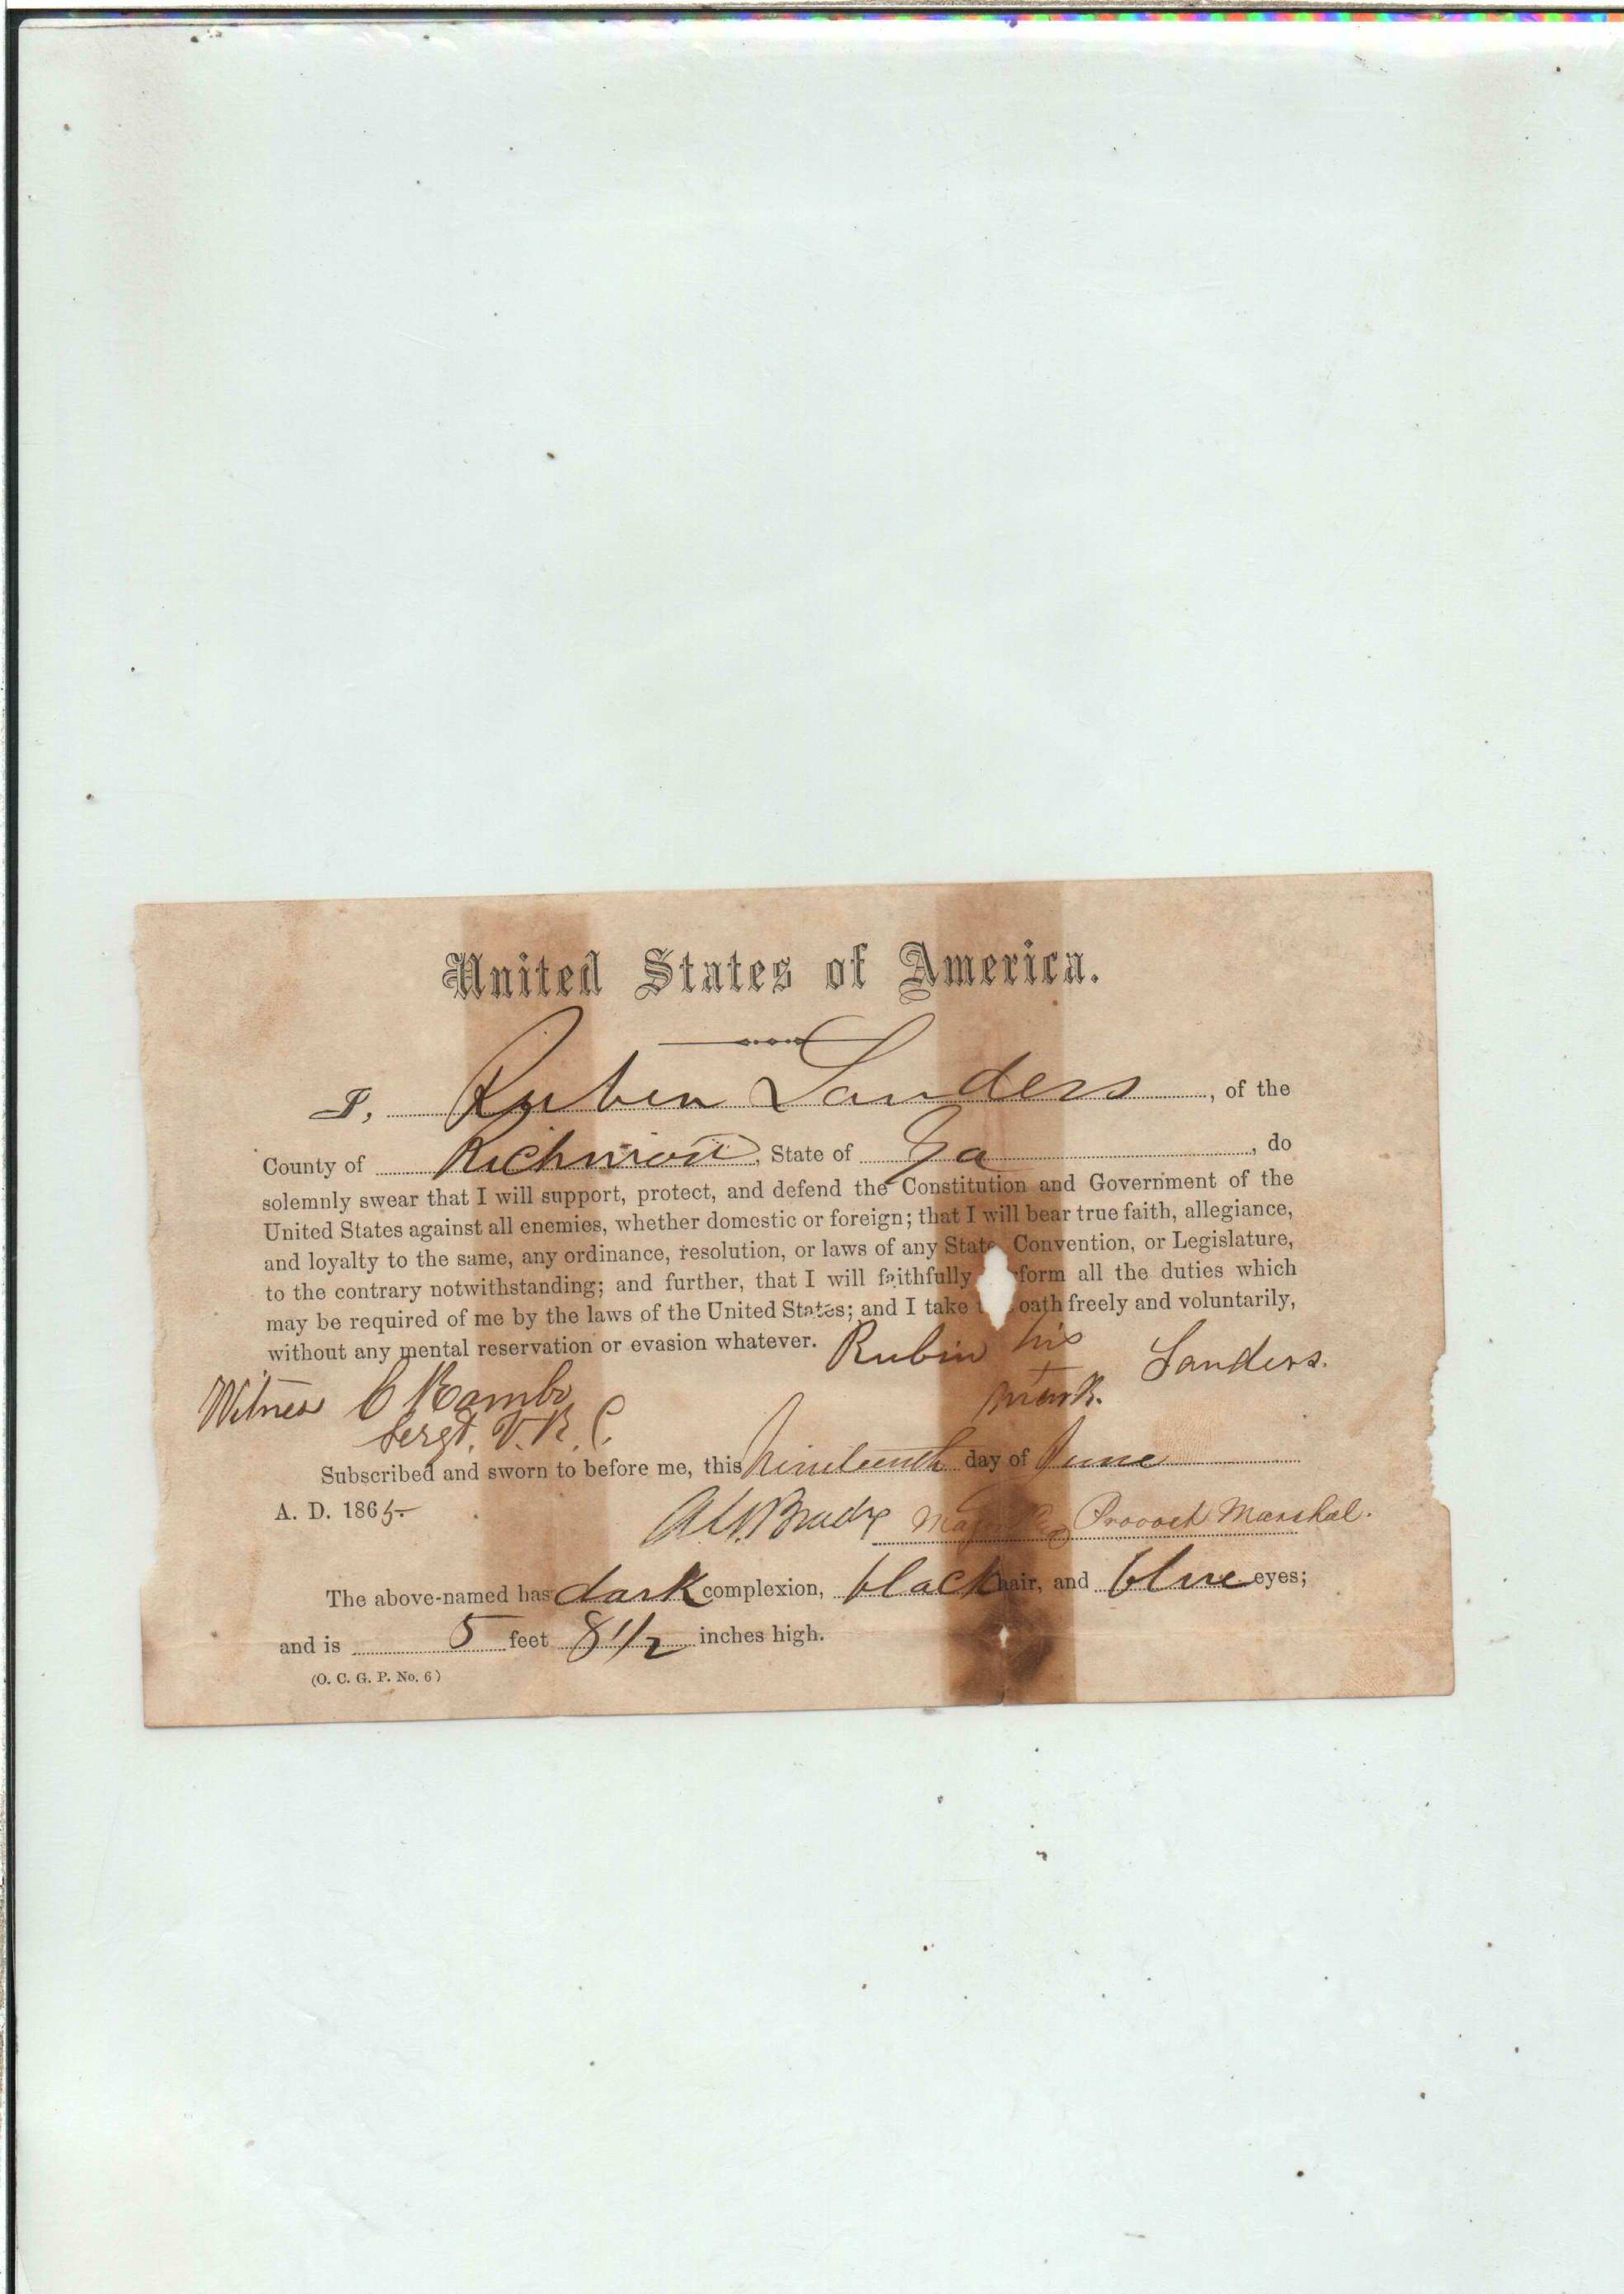 United States of America.
I, Ruben Sanders, of the
County of Richmond, State of Ga, do
solemnly swear that I will support, protect, and defend the Constitution and Government of the
United States against all enemies, whether domestic or foreign; that I will bear true faith, allegiance,
and loyalty to the same, any ordinance, resolution, or laws of any State Convention, or Legislature,
to the contrary notwithstanding; and further, that I will faithfully form all the duties which
may be required of me by the laws of the United States; and I take oath freely and voluntarily,
without any mental reservation or evasion whatever. Rubin his Sanders.
mark.
Witness C Rambo
Sergt. V. R. C.
Subscribed and sworn to before me, this Nineteenth day of June
A. D. 1865.
Brady Major Provost Marshal.
The above-named has dark complexion, black hair, and blue eyes;
and is 5 feet 8 1/2 inches high.
(O. C. G. P. No. 6)